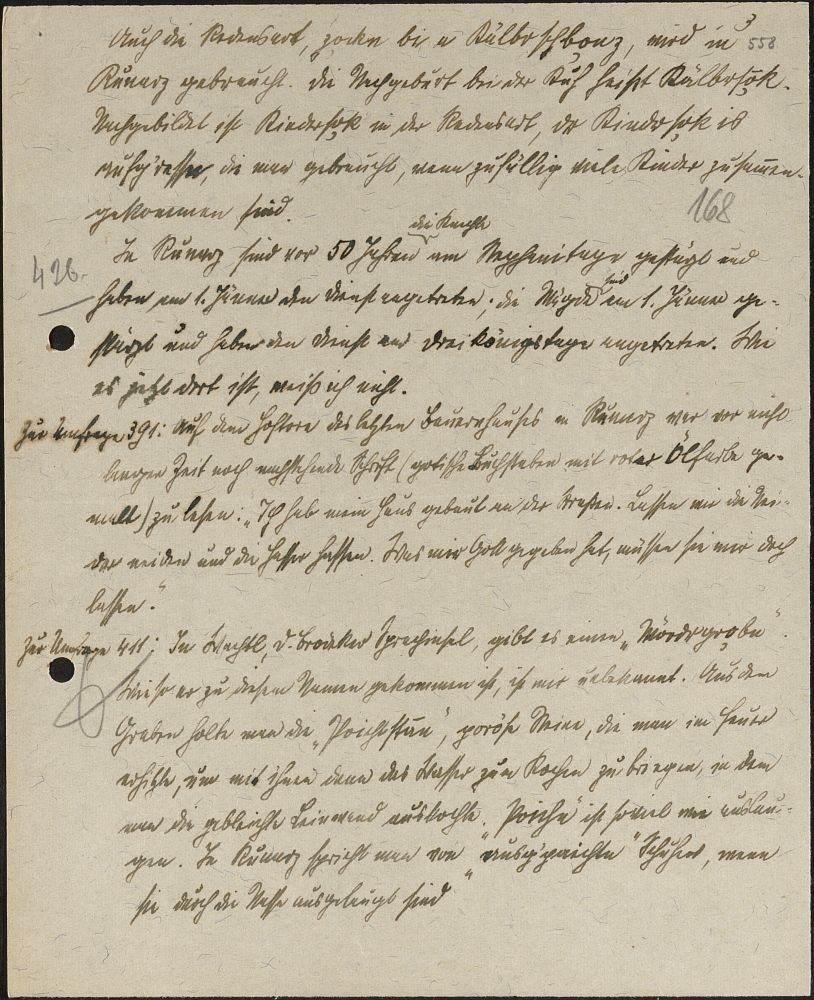 3
Auch die Redensart, zocken bis a Kälbrschbonz, wird in 558
Runarz gebraucht. Die Nachgeburt bei der Kuh heißt Kälbrsok.
Nachgebildet ist Kindersok in der Redensart, dr Kindrsok is
aufg'ressn, die man gebraucht, wenn zufällig viele Kinder zusammen-
gekommen sind.
168
426.
In Runarz sind vor 50 Jahren die Knechte am Stephanitage gestürzt und
haben am 1. Jänner den Dienst angetreten; die Mägde sind am 1. Jänner ge-
stürzt und haben den Dienst am Dreikönigstage angetreten. Wie
es jetzt dort ist, weiß ich nicht.
Zur Umfrage 391: Auf dem Hoftore des letzten Bauernhauses in Runarz war vor nicht
langer Zeit noch nachstehende Schrift (gotische Buchstaben mit roter Ölfarbe ge-
malt) zu lesen: „Ich hab mein Haus gebaut an der Straßen. Lassen mir die Nei-
der neiden und die Hasser hassen. Was mir Gott gegeben hat, müssen sie mir doch
lassen."
Zur Umfrage 411: In Wachtl, d. Brodeker Sprachinsel, gibt es einen „Mördrgrobn".
Wieso er zu diesem Namen gekommen ist, ist mir unbekannt. Aus dem
Graben holte man die „Poichstan", poröse Steine, die man im Feuer
erhitzte, um mit ihnen dann das Wasser zum Kochen zu bringen, in dem
man die gebleichte Leinwand auskochte. Poichn ist soviel wie auslau-
gen. In Runarz spricht man von „ausg'paichtn" Schuhen, wenn
sie durch die Nässe ausgelaugt sind